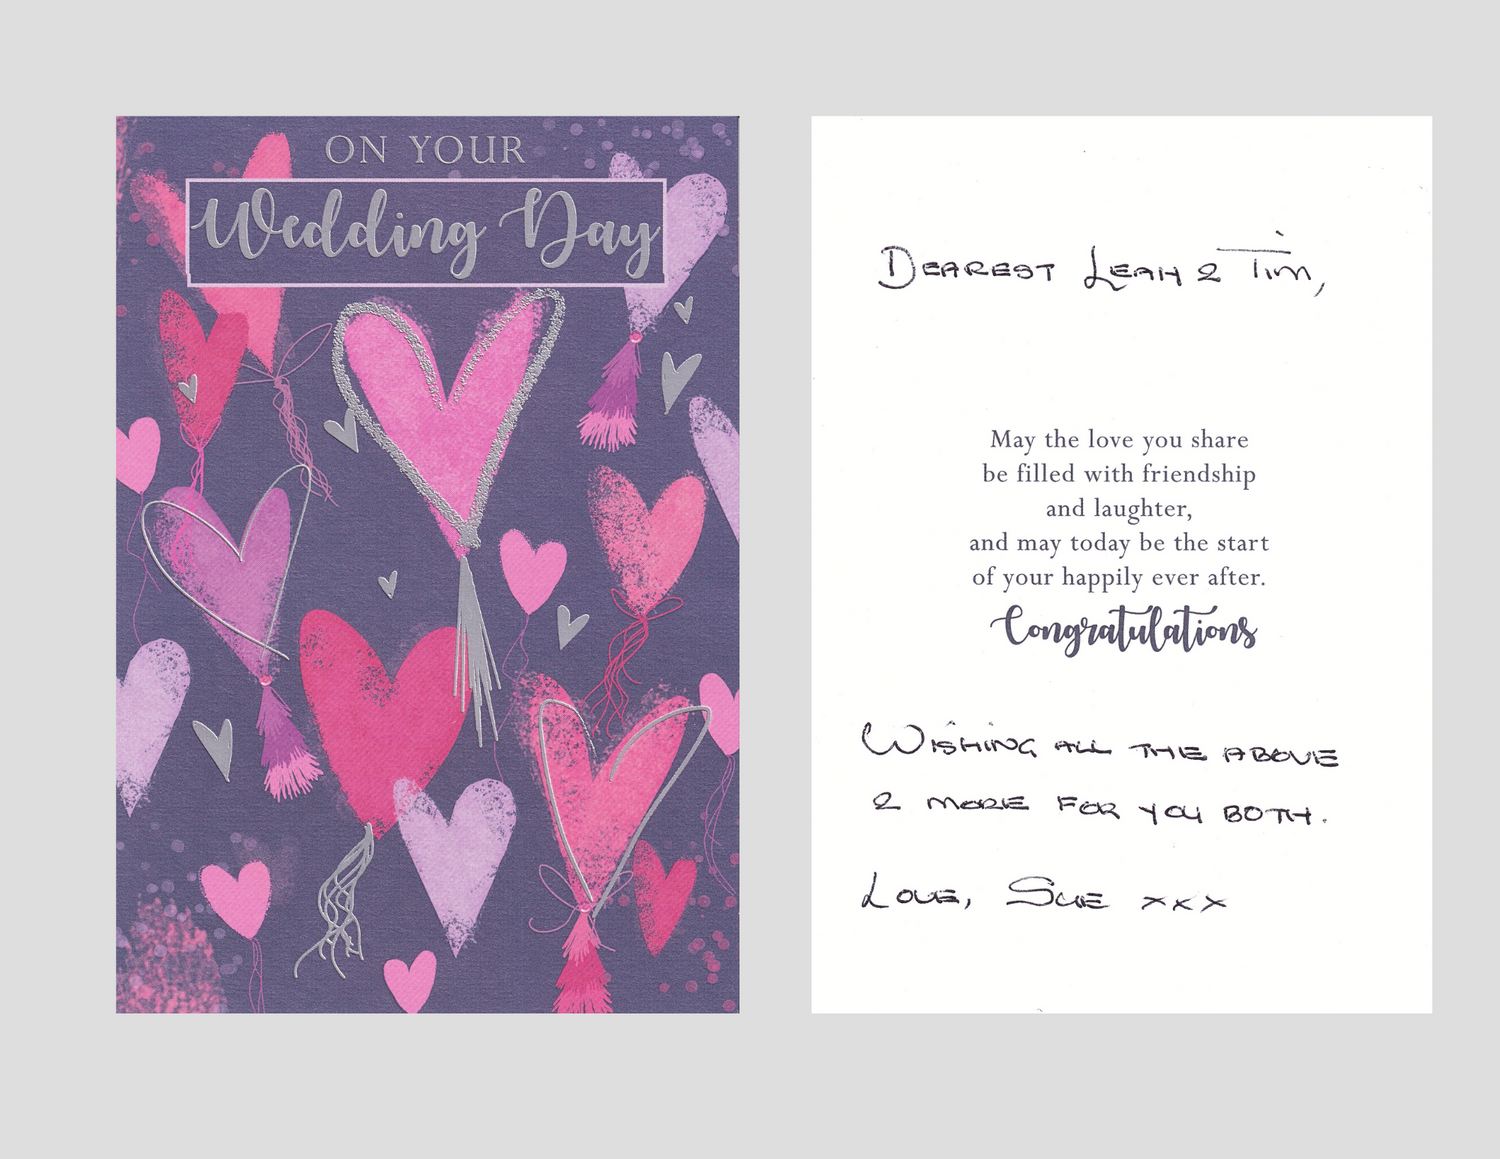 ON YOUR
Wedding Day
DEAREST LEAH & TIM,
May the love you share
be filled with friendship
and laughter,
and may today be the start
of your happily ever after.
Congratulations
WISHING ALL THE ABOVE
& MORE FOR YOU BOTH.
LOVE, SUE xxx